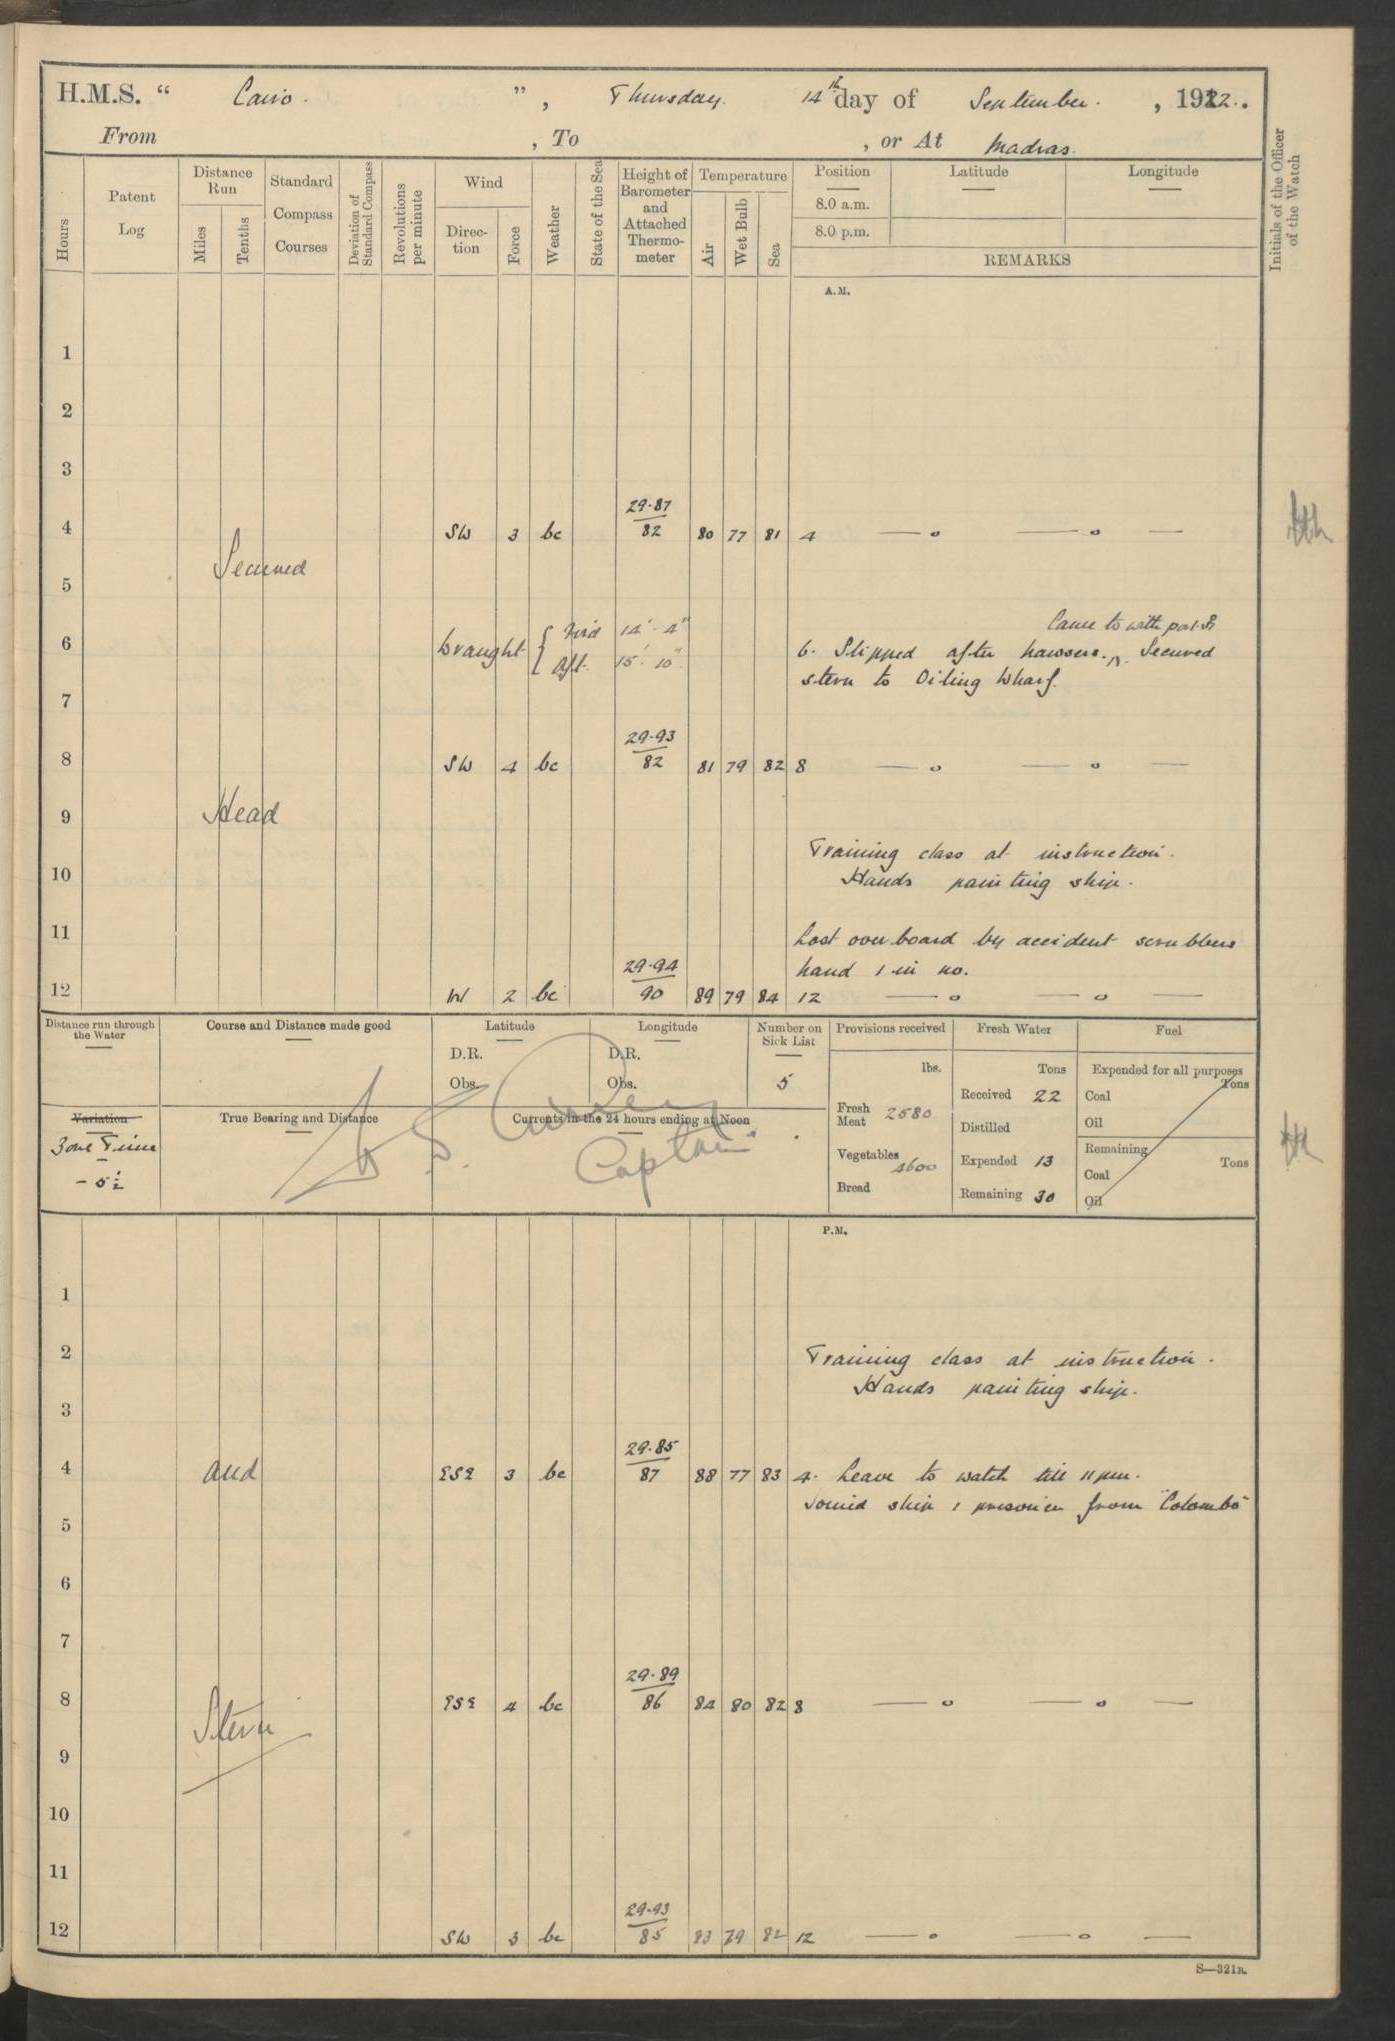 H.M.S. “ Cairo. ” , Thursday. 14th day of September. , 1922.
From , To , or At Madras.
Hours
Patent Log
Distance Run
Miles
Tenths
Standard Compass Courses
Deviation of Standard Compass
Revolutions per minute
Wind
Direction
Force
Weather
State of the Sea
Height of Barometer and Attached Thermometer
Temperature
Air
Wet Bulb
Sea
Position
8.0 a.m.
8.0 p.m.
Latitude
Longitude
REMARKS
Initials of the Officer of the Watch
A.M.
1
2
3
29.87
4 SW 3 bc 82 80 77 81 4 — o — o —
Secured
5
Came to with port
6 Draught { Fwd 14' - 4" 6. Slipped after hawsers. Secured
Aft. 15' 10" stern to Oiling Wharf.
7
29.93
8 SW 4 bc 82 81 79 82 8 — o — o —
9 Head
Training class at instruction.
10 Hands painting ship.
11 Lost overboard by accident scrubbers
29.94 hand 1 in no.
12 W 2 bc 90 89 79 84 12 — o — o —
Distance run through the Water
Course and Distance made good
Latitude
D.R.
Obs.
Longitude
D.R.
Obs.
Number on Sick List
5
Provisions received
lbs.
Fresh Meat 2580
Vegetables 4600
Bread
Fresh Water
Tons
Received 22
Distilled
Expended 13
Remaining 30
Fuel
Expended for all purposes
Tons
Coal
Oil
Remaining
Tons
Coal
Oil
Variation
Zone Time
- 5½
True Bearing and Distance
Currents in the 24 hours ending at Noon
Captain
P.M.
1
2 Training class at instruction.
Hands painting ship.
3
29.85
4 and ESE 3 bc 87 88 77 83 4. Leave to watch till 11 pm.
Joined ship 1 prisoner from "Colombo"
5
6
7
29.89
8 ESE 4 bc 86 84 80 82 8 — o — o —
Stern
9
10
11
29.93
12 SW 3 bc 85 83 79 82 12 — o — o —
S—321B.